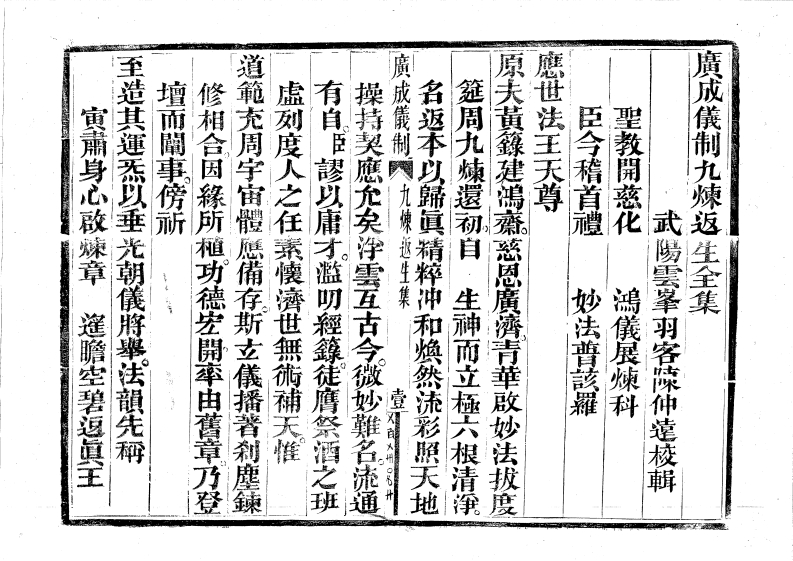 廣成儀制九煉返生全集
武陽雲峯羽客陳仲遠校輯
聖教開慈化　鴻儀展煉科
臣今稽首禮　妙法普該羅
應世法王天尊
原夫黃籙建鴻齋。慈恩廣濟。青華啟妙法拔度
筵周九煉還初。自　生神而立極六根清淨。
名返本以歸眞精粹沖和煥然流彩照天地
廣成儀制　九煉返生集　壹
操持契應允矣浮雲互古今。微妙難名。流通
有自。臣謬以庸才。濫叨經籙。徒膺祭酒之班
虛列度人之任素懷濟世無術補天。惟
道範充周宇宙體應備存。斯立儀播著刹塵鍊
修相合因緣所植。功德宏開率由舊章乃登
壇而闡事。傍祈
至造其運炁以垂光朝儀將舉。法韻先稱
寅肅身心啟煉章　遙瞻空碧返眞王